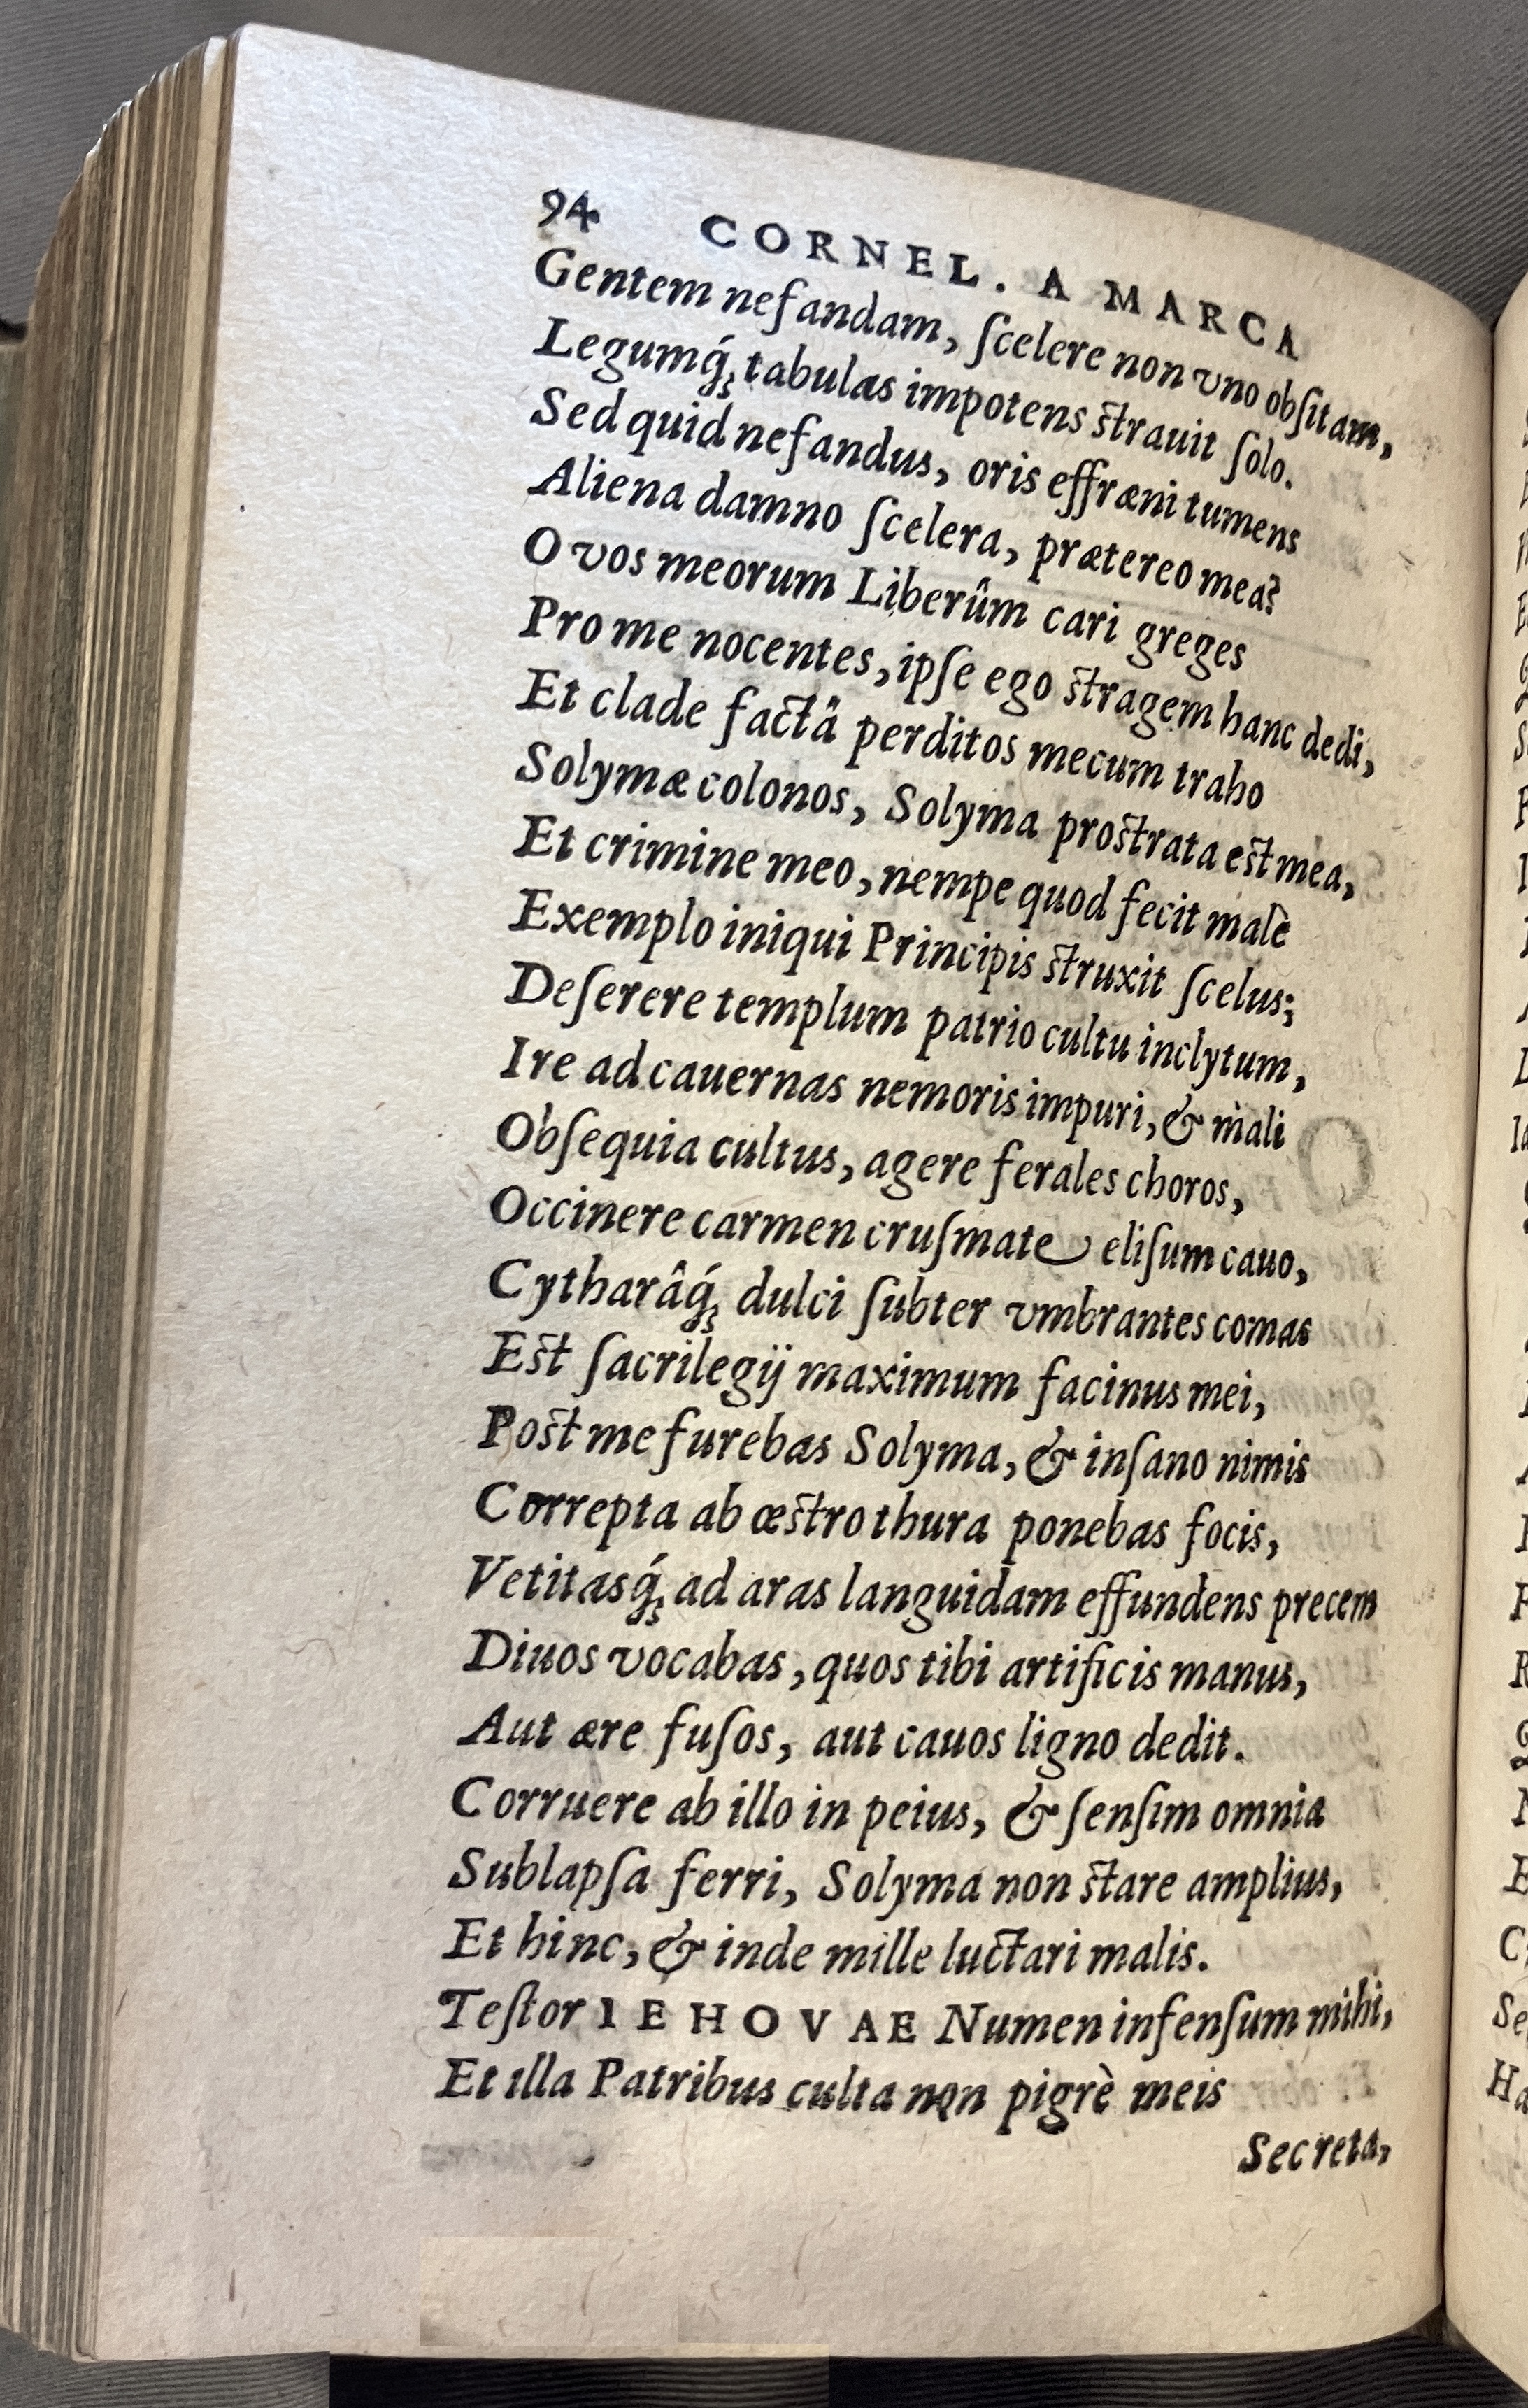 94 CORNEL. A MARCA
Gentem nefandam, ſcelere non vno obſitam,
Legumq́; tabulas impotens ſtrauit ſolo.
Sed quid nefandus, oris effræni tumens
Aliena damno ſcelera, prætereo mea?
O vos meorum Liberûm cari greges
Pro me nocentes, ipſe ego ſtragem hanc dedi,
Et clade factâ perditos mecum traho
Solymæ colonos, Solyma proſtrata eſt mea,
Et crimine meo, nempe quod fecit malè
Exemplo iniqui Principis ſtruxit ſcelus;
Deſerere templum patrio cultu inclytum,
Ire ad cauernas nemoris impuri, & mali
Obſequia cultus, agere ferales choros,
Occinere carmen cruſmate eliſum cauo,
Cytharâq́; dulci ſubter vmbrantes comas
Eſt ſacrilegij maximum facinus mei,
Poſt me furebas Solyma, & inſano nimis
Correpta ab œſtro thura ponebas focis,
Vetitasq́; ad aras languidam effundens precem
Diuos vocabas, quos tibi artificis manus,
Aut ære fuſos, aut cauos ligno dedit.
Corruere ab illo in peius, & ſenſim omnia
Sublapſa ferri, Solyma non ſtare amplius,
Et hinc, & inde mille luctari malis.
Teſtor IEHOVAE Numen infenſum mihi,
Et illa Patribus culta non pigrè meis
Secreta,